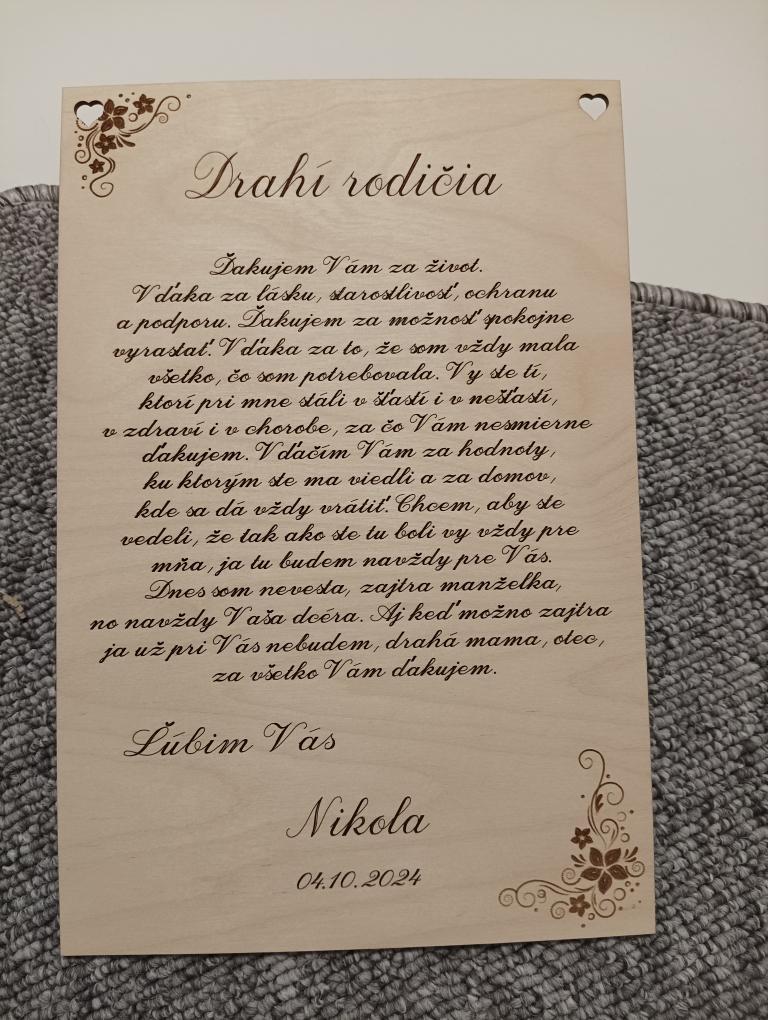 Drahí rodičia
Ďakujem Vám za život.
Vďaka za lásku, starostlivosť, ochranu
a podporu. Ďakujem za možnosť spokojne
vyrastať. Vďaka za to, že som vždy mala
všetko, čo som potrebovala. Vy ste tí,
ktorí pri mne stáli v šťastí i v nešťastí,
v zdraví i v chorobe, za čo Vám nesmierne
ďakujem. Vďačím Vám za hodnoty,
ku ktorým ste ma viedli a za domov,
kde sa dá vždy vrátiť. Chcem, aby ste
vedeli, že tak ako ste tu boli vy vždy pre
mňa, ja tu budem navždy pre Vás.
Dnes som nevesta, zajtra manželka,
no navždy Vaša dcéra. Aj keď možno zajtra
ja už pri Vás nebudem, drahá mama, otec,
za všetko Vám ďakujem.
Ľúbim Vás
Nikola
04.10.2024